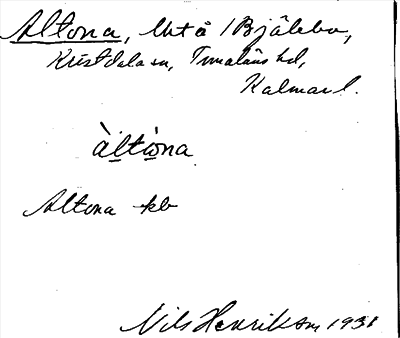 Altona, Utå / Bjälebo,
Kristdala sn, Tunaläns hd,
Kalmar l.
àltòna
Altona kb
Nils Henrikson 1931